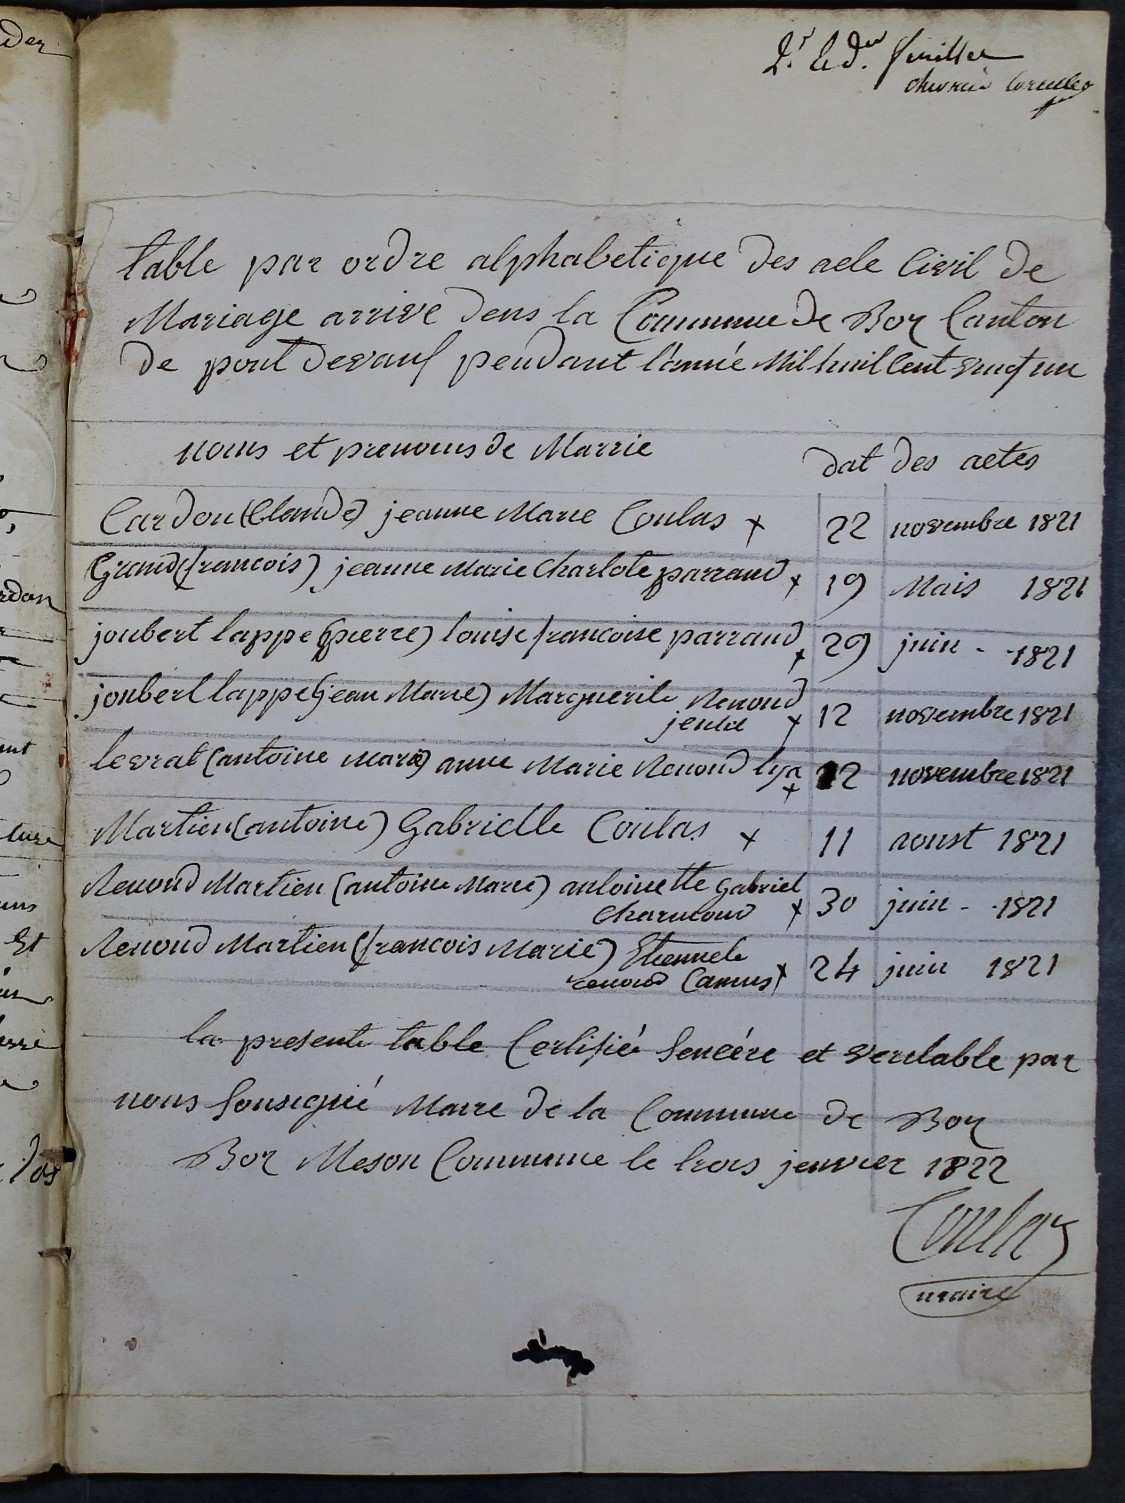 2.r et d.er feuillet
table par ordre alphabetique des acte Civil de
Mariage arrivé dens la Commune de Boz Canton
de pont devaux pendant l'année Mil huil Cent vingt un
noms et prenoms de Marrie dat des actes
Cardon (Claude) jeanne Marie Coulas x 22 novembre 1821
Grand (francois) jeanne Marie Charlote parraud x 19 Mais 1821
joubert lappe (pierre) louise francoise parraud x 29 juin - - 1821
joubert lappe (jean Marie) Marguerite Renoud
jeula x 12 novembre 1821
levrat (antoine Marie) anne Marie Renoud lya x 12 novembre 1821
Martien (antoine) Gabrielle Coulas x 11 aoust 1821
Renoud Martien (antoine Marie) antoinette Gabriel
Charmoud x 30 juin - - 1821
Renoud Martien (francois Marie) Etiennete
renoud Camus x 24 juin 1821
la presente table Certifié Senceére et veritable par
nous Sousigné Maire de la Commune de Boz
Boz Meson Commune le trois jenvier 1822
Coulas
maire